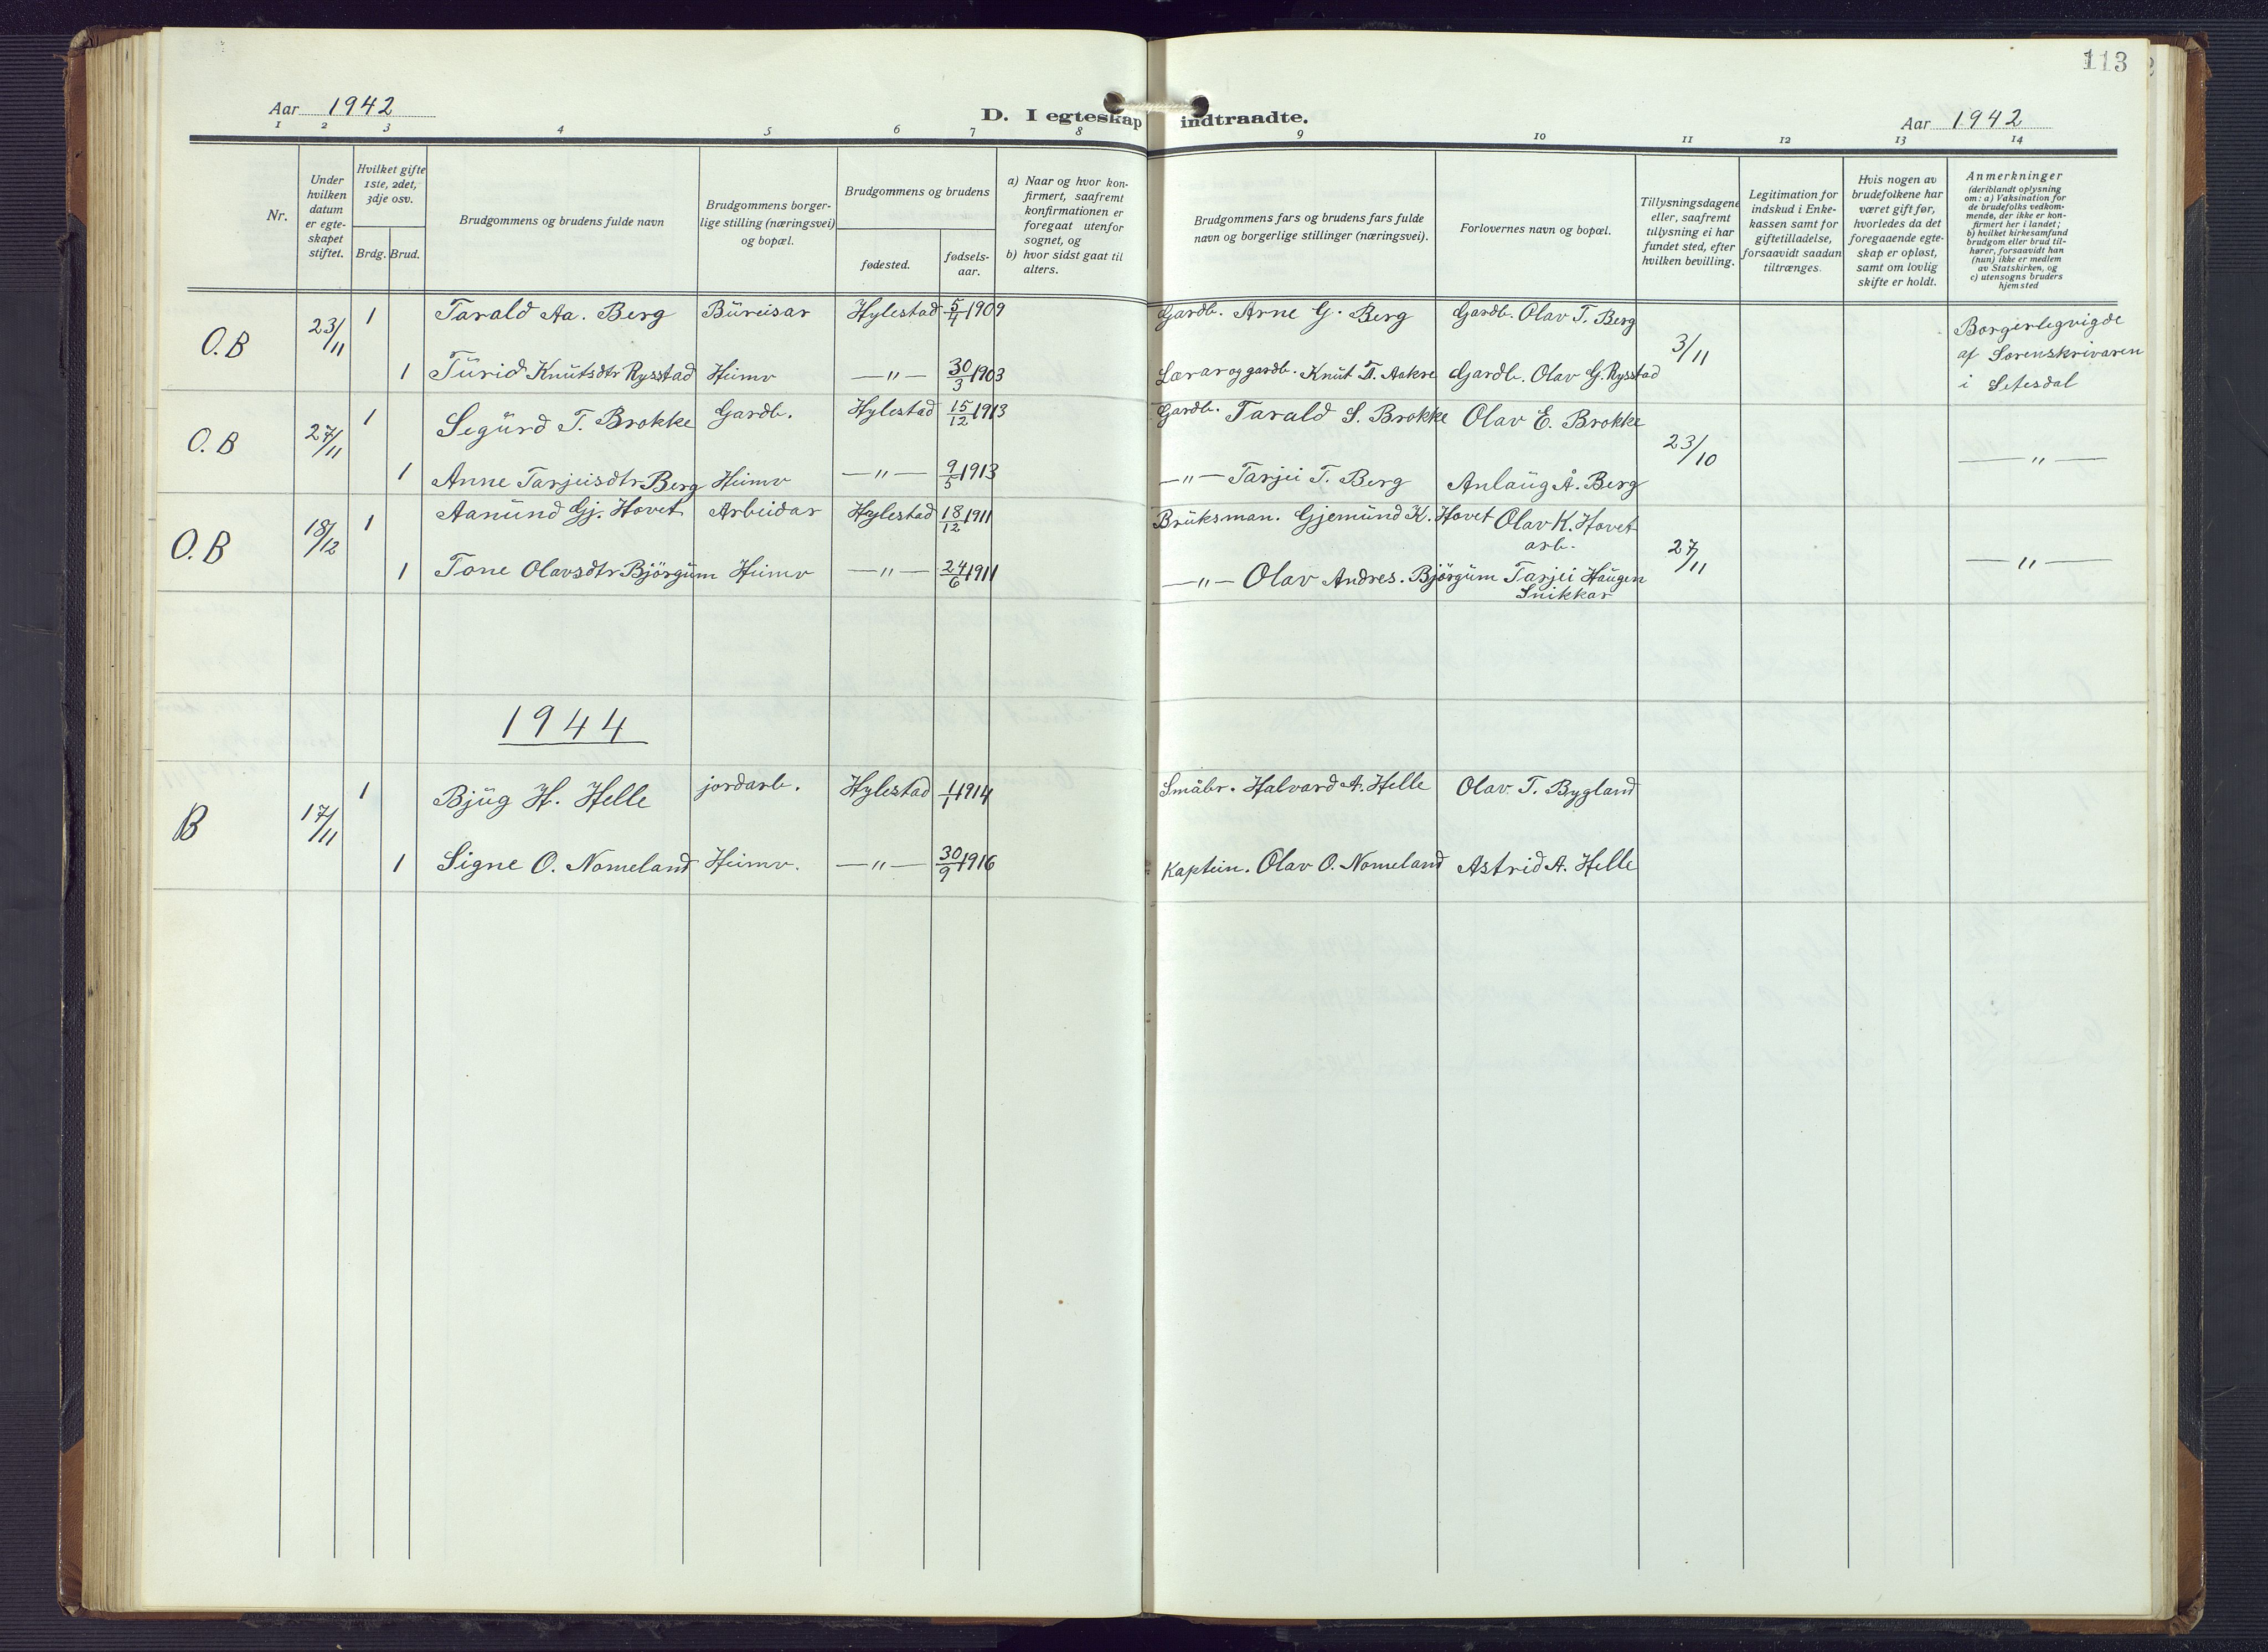 113
Aar 1942
D. I egteskap indtraadte.
Aar 1942
1 2 3 4 5 6 7 8 9 10 11 12 13 14
Nr.
Under hvilken datum er egteskapet stiftet.
Hvilket gifte 1ste, 2det, 3dje osv.
Brdg. Brud.
Brudgommens og brudens fulde navn
Brudgommens borgerlige stilling (næringsvei) og bopæl.
Brudgommens og brudens
fødested.
fødselsaar.
a) Naar og hvor konfirmert, saafremt konfirmationen er foregaat utenfor sognet, og
b) hvor sidst gaat til alters.
Brudgommens fars og brudens fars fulde navn og borgerlige stillinger (næringsvei).
Forlovernes navn og bopæl.
Tillysningsdagene eller, saafremt tillysning ei har fundet sted, efter hvilken bevilling.
Legitimation for indskud i Enkekassen samt for giftetilladelse, forsaavidt saadan tiltrænges.
Hvis nogen av brudefolkene har været gift før, hvorledes da det foregaaende egteskap er opløst, samt om lovlig skifte er holdt.
Anmerkninger (deriblandt oplysning om: a) Vaksination for de brudefolks vedkommende, der ikke er konfirmert her i landet; b) hvilket kirkesamfund brudgom eller brud tilhører, forsaavidt han (hun) ikke er medlem av Statskirken, og c) utensogns bruders hjemsted
O.B 23/11 1 Tarald Aa. Berg Büreisar Hylestad 5/4 1909 Gardb. Arne G. Berg Gardb. Olav T. Berg 3/11 Borgerlegvigde af Sorenskrivaren i Setesdal
1 Türid Knütsdtr Rysstad Heimv —"— 30/3 1903 Lærar og gardb. Knüt T. Aakre Gardb. Olav G. Rysstad
O.B 27/11 1 Segürd T. Brokke Gardb. Hylestad 15/12 1913 Gardb. Tarald S. Brokke Olav E. Brokke 23/10 —"—
1 Anne Tarjeisdtr Berg Heimv —"— 9/5 1913 —"— Tarjei T. Berg Anlaüg Å. Berg
O.B 18/12 1 Aanünd Gj. Hovet Arbeidar Hylestad 18/12 1911 Brüksman. Gjemünd K. Hovet Olav K. Hovet arb. 27/11 —"—
1 Tone Olavsdtr Björgüm Heimv —"— 24/6 1911 —"— Olav Andres. Björgüm Tarjei Haügen Snikkar
1944
B 17/11 1 Bjüg H. Helle jordarb. Hylestad 1/1 1914 Småbr. Halvard A. Helle Olav T. Bygland
1 Signe O. Nomeland Heimv. —"— 30/9 1916 Kaptein. Olav O. Nomeland Astrid A. Helle